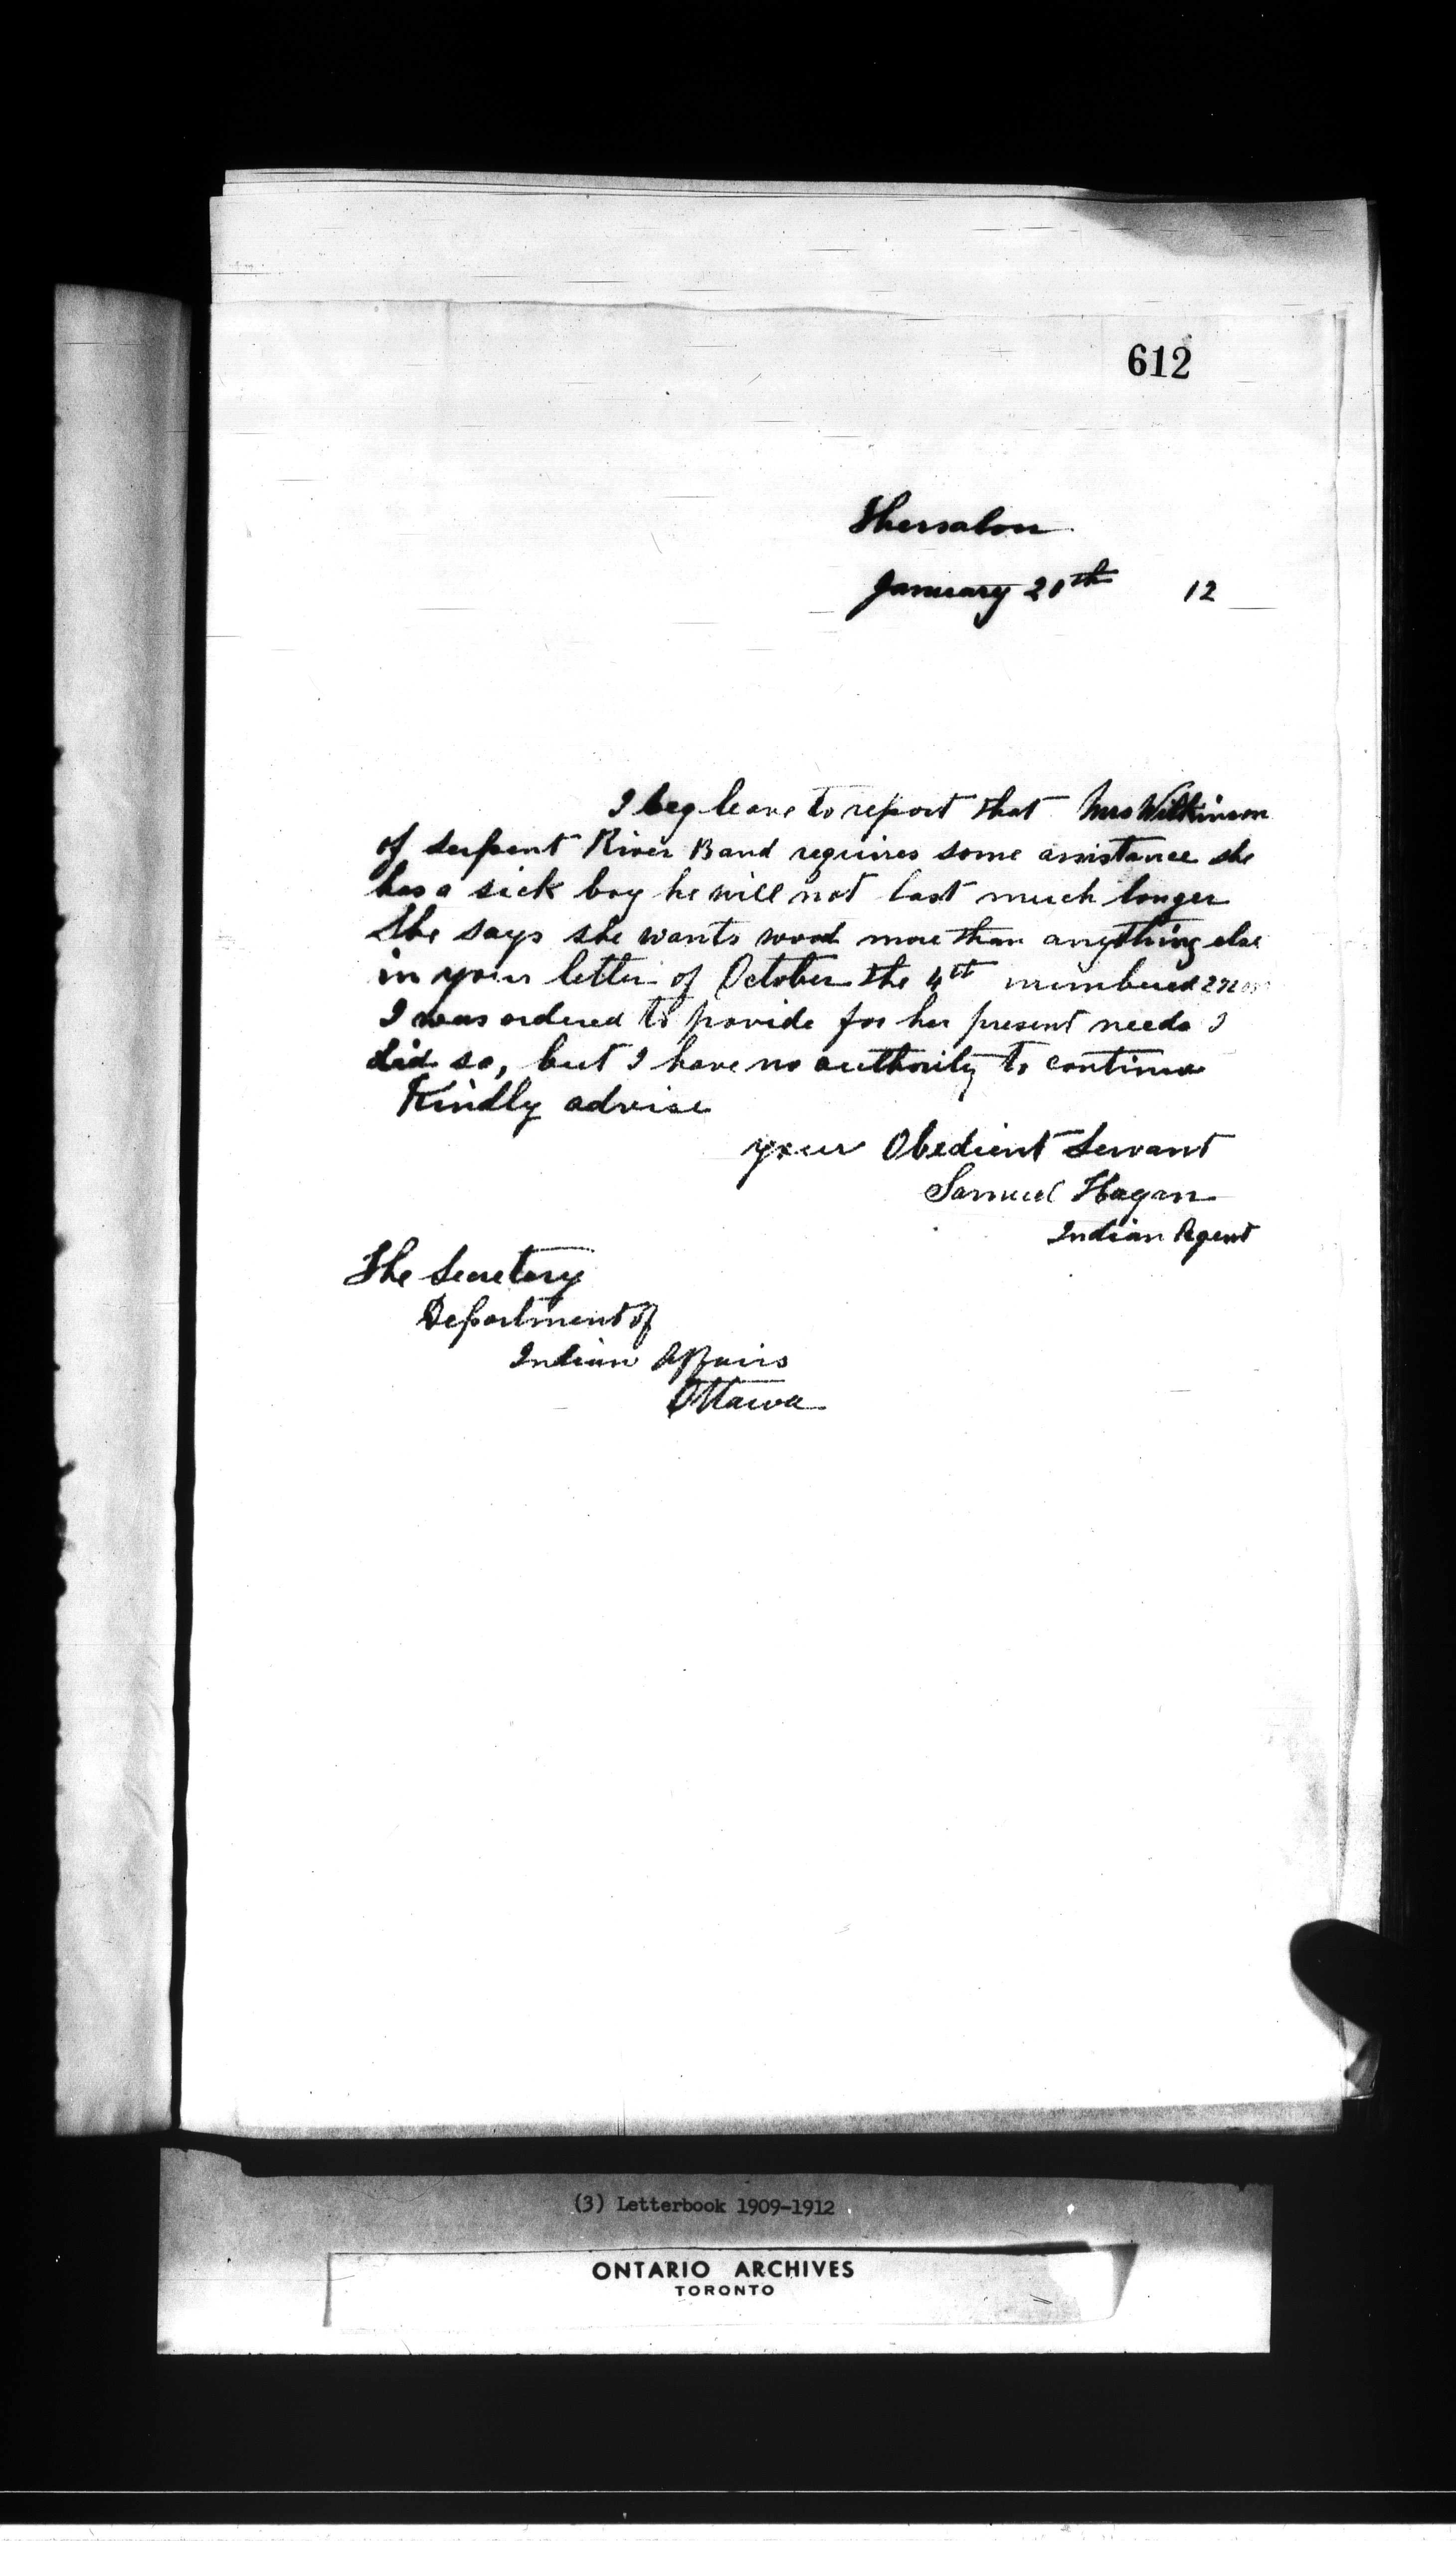 612
Thessalon
January 20th 12
I beg leave to report that Mrs Wilkinson
of serpent River Band requires some assistance she
has a sick boy he will not last much longer
She says she wants wood more than anything else
in your letter of October the 4th numbered
I was ordered to provide for her present needs I
did so, but I have no authority to continue
Kindly advise
your Obedient Servant
Samuel Hagan
Indian Agent
The Secretary
Department of
Indian Affairs
Ottawa
(3) Letterbook 1909-1912
ONTARIO ARCHIVES
TORONTO